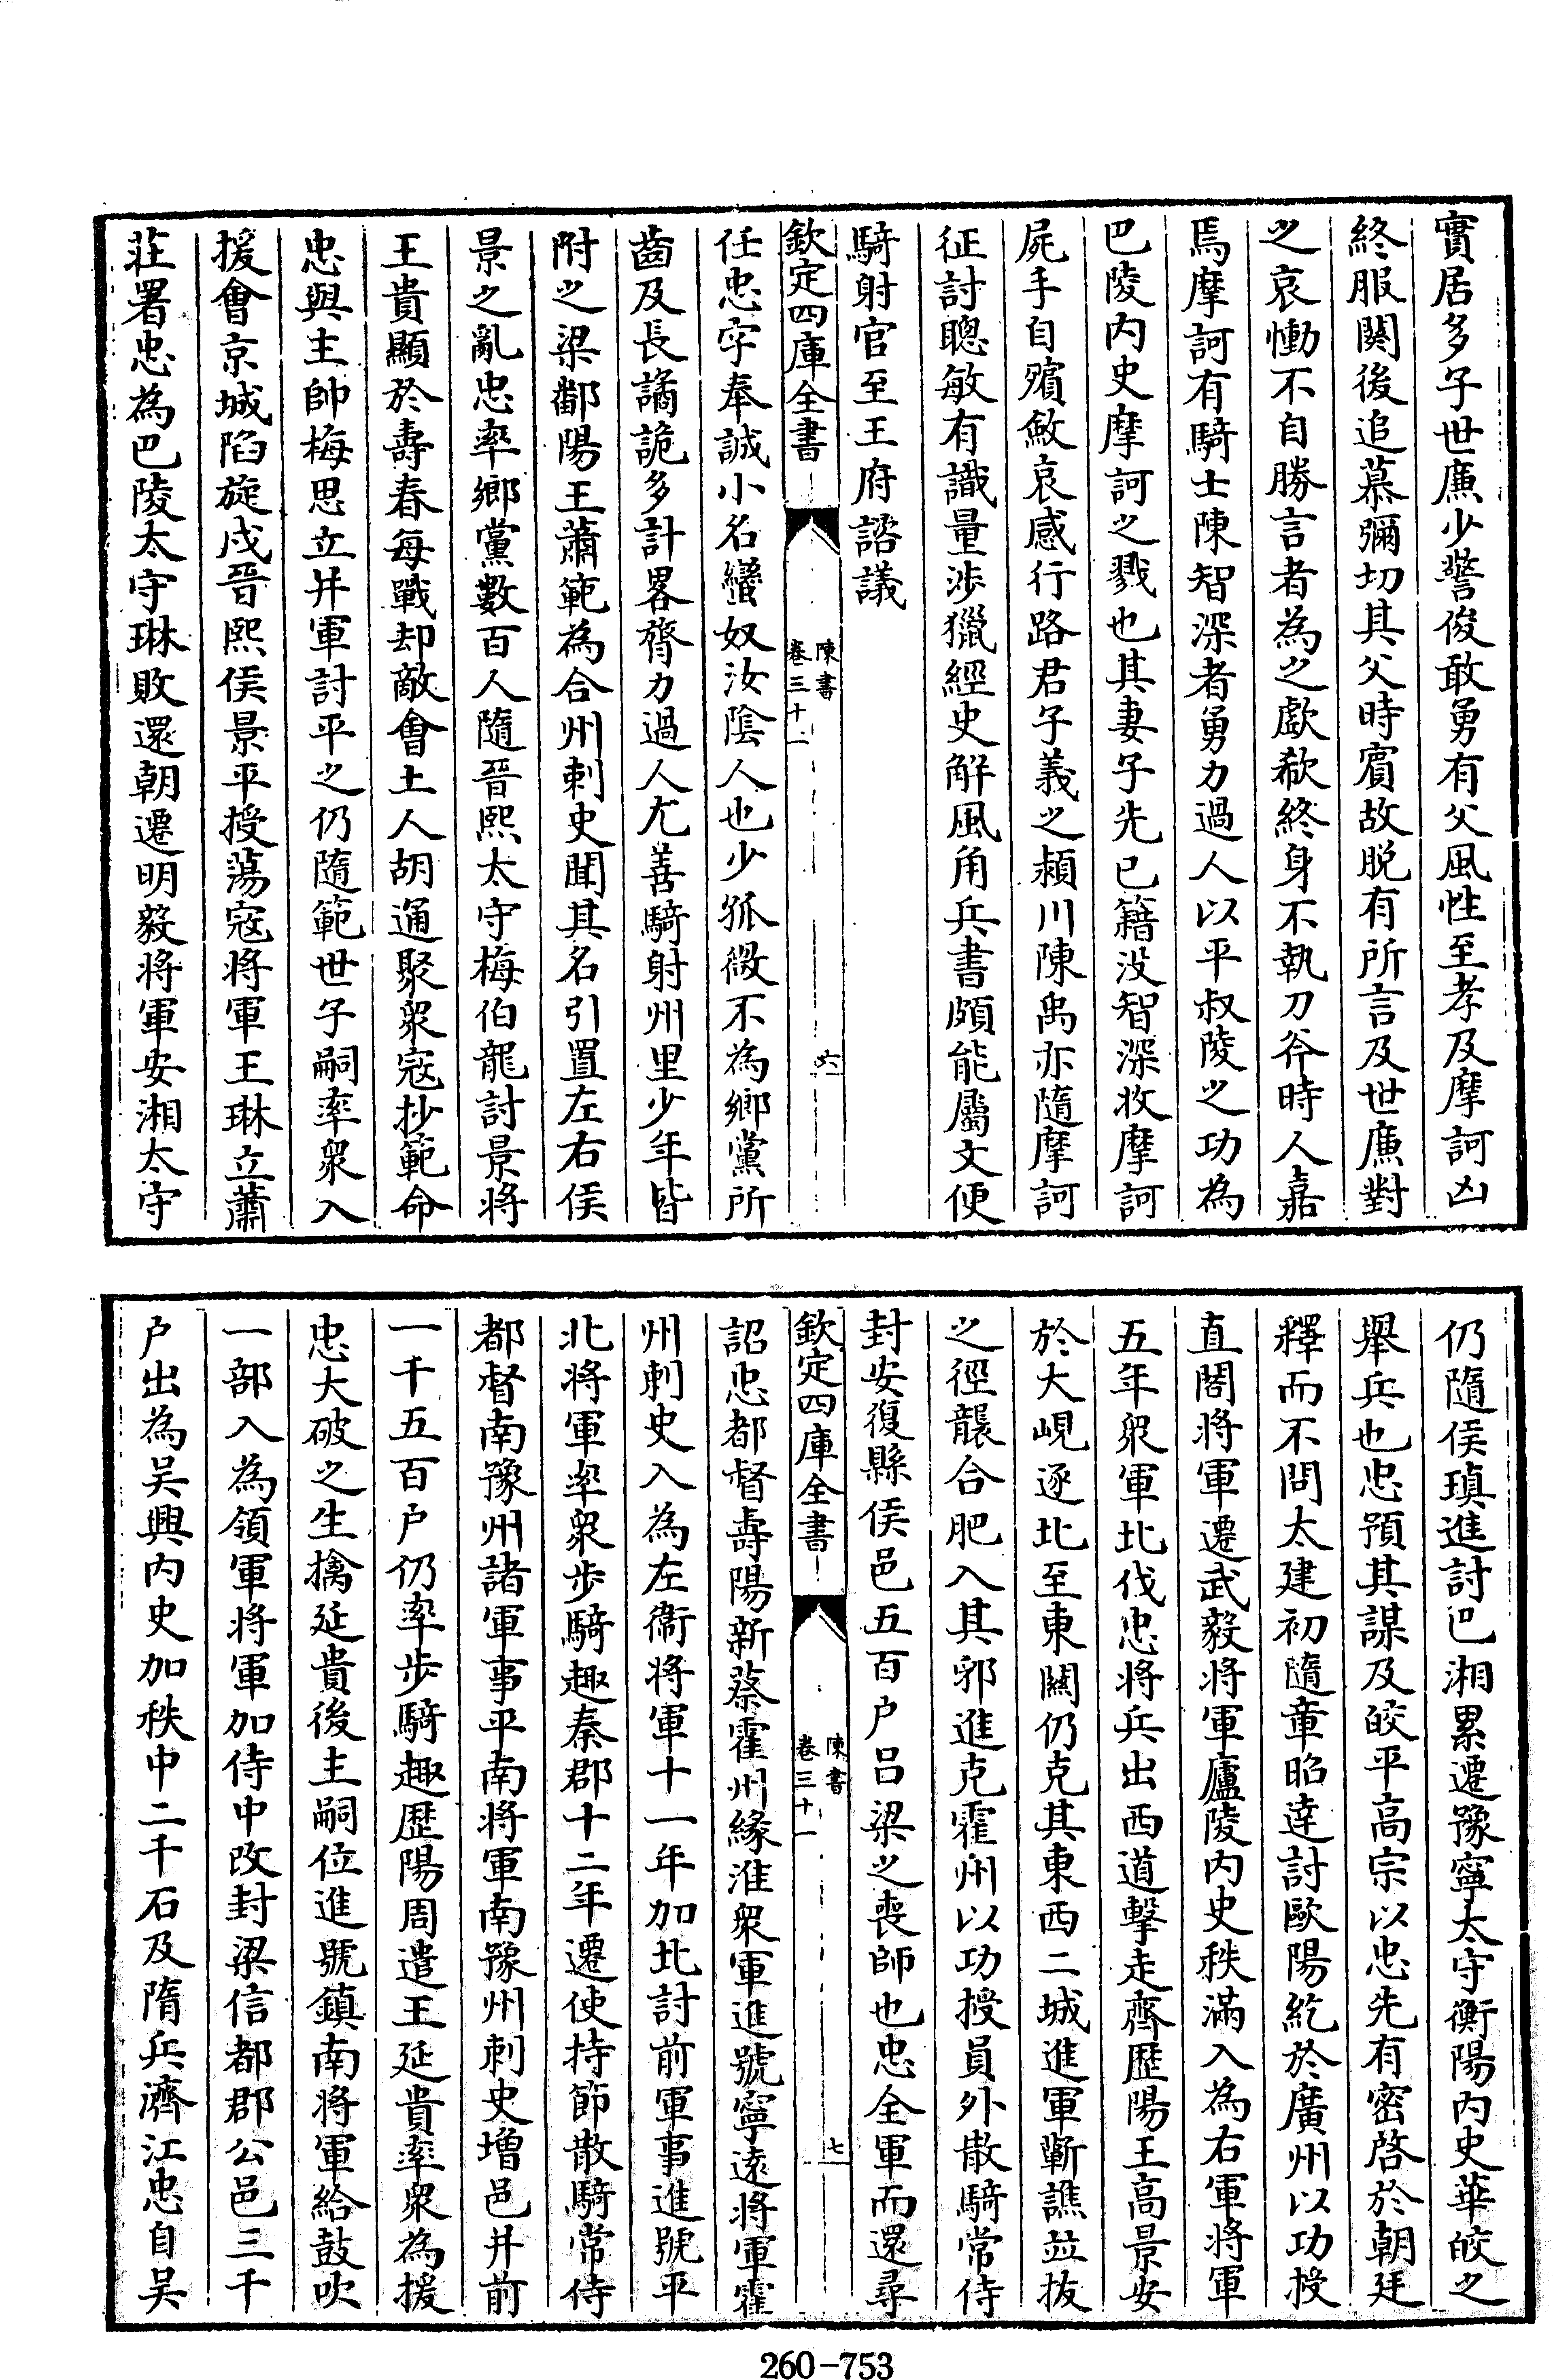 實居多子世廉少警俊敢勇有父風性至孝及摩訶凶
終服闋後追慕彌切其父時賓故脱有所言及世廉對
之哀慟不自勝言者為之歔欷終身不執刀斧時人嘉
焉摩訶有騎士陳智深者勇力過人以平叔陵之功為
巴陵内史摩訶之戮也其妻子先已籍没智深收摩訶
屍手自殯斂哀感行路君子義之潁川陳禹亦隨摩訶
征討聰敏有識量涉獵經史解風角兵書頗能屬文便
騎射官至王府諮議
欽定四庫全書
陳書
卷三十一
六
任忠字奉誠小名蠻奴汝陰人也少孤微不為鄉黨所
齒及長譎詭多計畧膂力過人尤善騎射州里少年皆
附之梁鄱陽王蕭範為合州刺史聞其名引置左右侯
景之亂忠率鄉黨數百人隨晉熙太守梅伯龍討景將
王貴顯於壽春每戰却敵會土人胡通聚衆寇抄範命
忠與主帥梅思立并軍討平之仍隨範世子嗣率衆入
援會京城陷旋戍晉熙侯景平授蕩寇將軍王琳立蕭
莊署忠為巴陵太守琳敗還朝遷明毅將軍安湘太守
仍隨侯瑱進討巴湘累遷豫寧太守衡陽内史華皎之
舉兵也忠預其謀及皎平高宗以忠先有密啓於朝廷
釋而不問太建初隨章昭達討歐陽紇於廣州以功授
直閤將軍遷武毅將軍廬陵内史秩滿入為右軍將軍
五年衆軍北伐忠將兵出西道擊走齊歷陽王高景安
於大峴逐北至東關仍克其東西二城進軍蘄譙並拔
之徑襲合肥入其郛進克霍州以功授員外散騎常侍
封安復縣侯邑五百户吕梁之喪師也忠全軍而還尋
欽定四庫全書
陳書
卷三十一
七
詔忠都督壽陽新蔡霍州緣淮衆軍進號寧遠將軍霍
州刺史入為左衞將軍十一年加北討前軍事進號平
北將軍率衆步騎趣秦郡十二年遷使持節散騎常侍
都督南豫州諸軍事平南將軍南豫州刺史增邑并前
一千五百户仍率步騎趣歷陽周遣王延貴率衆為援
忠大破之生擒延貴後主嗣位進號鎮南將軍給鼓吹
一部入為領軍將軍加侍中改封梁信都郡公邑三千
户出為吴興内史加秩中二千石及隋兵濟江忠自吴
260-753